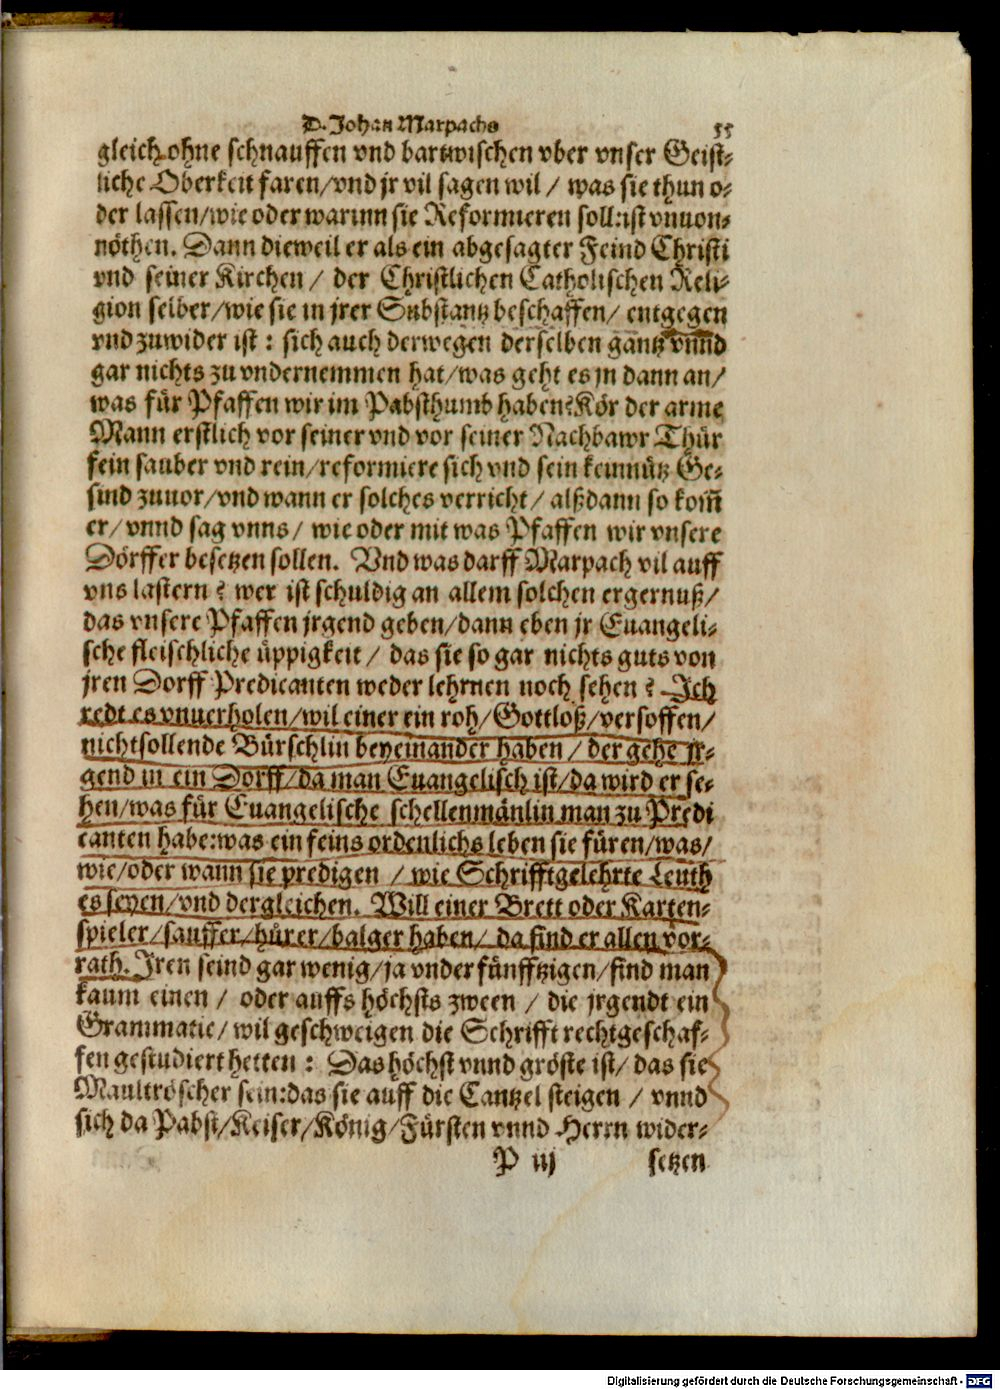 D. Johan Marpachs 55
gleich ohne schnauffen vnd bartwischen vber vnser Geist-
liche Oberkeit faren/vnd jr vil sagen wil / was sie thun o-
der lassen/wie oder warinn sie Reformieren soll:ist vnuon-
nöthen. Dann dieweil er als ein abgesagter Feind Christi
vnd seiner Kirchen / der Christlichen Catholischen Reli-
gion selber/wie sie in jrer Substantz beschaffen/ entgegen
vnd zuwider ist : sich auch derwegen derselben gantz vnnd
gar nichts zu vndernemmen hat/was geht es jn dann an/
was für Pfaffen wir im Pabsthumb haben? Kör der arme
Mann erstlich vor seiner vnd vor seiner Nachbawr Thür
fein sauber vnd rein/reformiere sich vnd sein keinnütz Ge-
sind zuuor/vnd wann er solches verricht / alßdann so kom̃
er/ vnnd sag vnns/ wie oder mit was Pfaffen wir vnsere
Dörffer besetzen sollen. Vnd was darff Marpach vil auff
vns lastern ? wer ist schuldig an allem solchen ergernuß/
das vnsere Pfaffen jrgend geben/dann eben jr Euangeli-
sche fleischliche üppigkeit / das sie so gar nichts guts von
jren Dorff Predicanten weder lehrnen noch sehen ? Ich
redt es vnuerholen/wil einer ein roh/Gottloß/versoffen/
nichtsollende Bürschlin beyeinander haben / der gehe jr-
gend in ein Dorff/da man Euangelisch ist/da wird er se-
hen/was für Euangelische schellenmänlin man zu Predi
canten habe:was ein feins ordenlichs leben sie füren/was/
wie/oder wann sie predigen / wie Schrifftgelehrte Leuth
es seyen/vnd dergleichen. Will einer Brett oder Karten-
spieler/sauffer/hürer/balger haben/ da find er allen vor-
rath. Jren seind gar wenig/ja vnder fünfftzigen/find man
kaum einen / oder auffs höchsts zween / die jrgendt ein
Grammatic/wil geschweigen die Schrifft rechtgeschaf-
fen gestudiert hetten : Das höchst vnnd gröste ist/ das sie
Maultröscher sein:das sie auff die Cantzel steigen / vnnd
sich da Pabst/Keiser/König/Fürsten vnnd Herrn wider-
P iij setzen
Digitalisierung gefördert durch die Deutsche Forschungsgemeinschaft - DFG